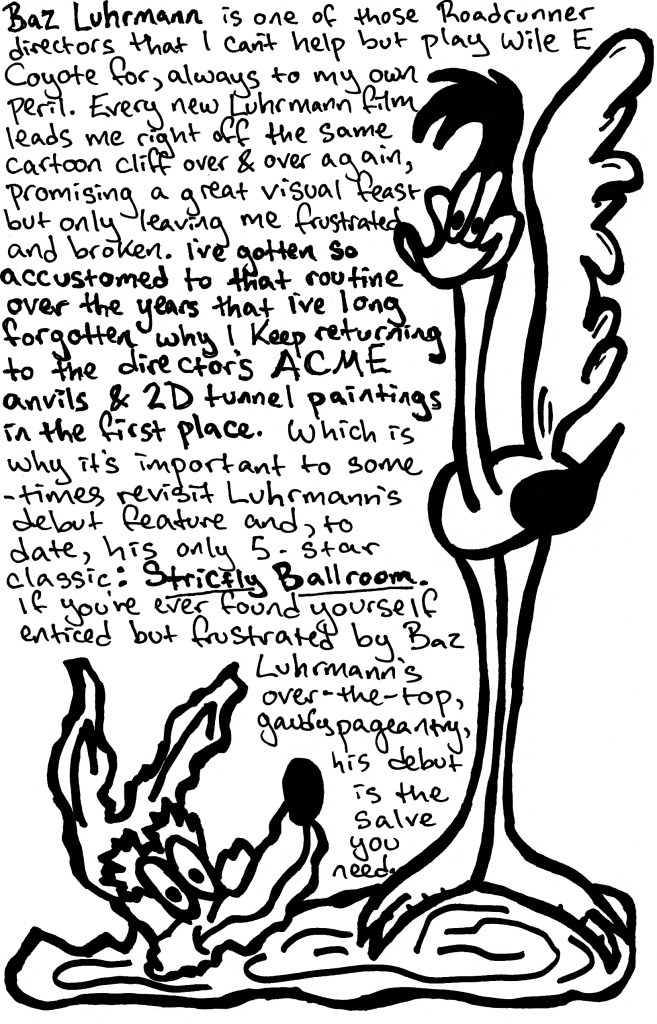 Baz Luhrmann is one of those Roadrunner
directors that I can't help but play Wile E
Coyote for, always to my own
peril. Every new Luhrmann film
leads me right off the same
cartoon cliff over & over again,
promising a great visual feast
but only leaving me frustrated
and broken. I've gotten so
accustomed to that routine
over the years that I've long
forgotten why I keep returning
to the director's ACME
anvils & 2D tunnel paintings
in the first place. Which is
why it's important to some
-times revisit Luhrmann's
debut feature and, to
date, his only 5-star
classic: Strictly Ballroom.
If you're ever found yourself
enticed but frustrated by Baz
Luhrmann's
over-the-top,
gaudy pageantry,
his debut
is the
salve
you
need.